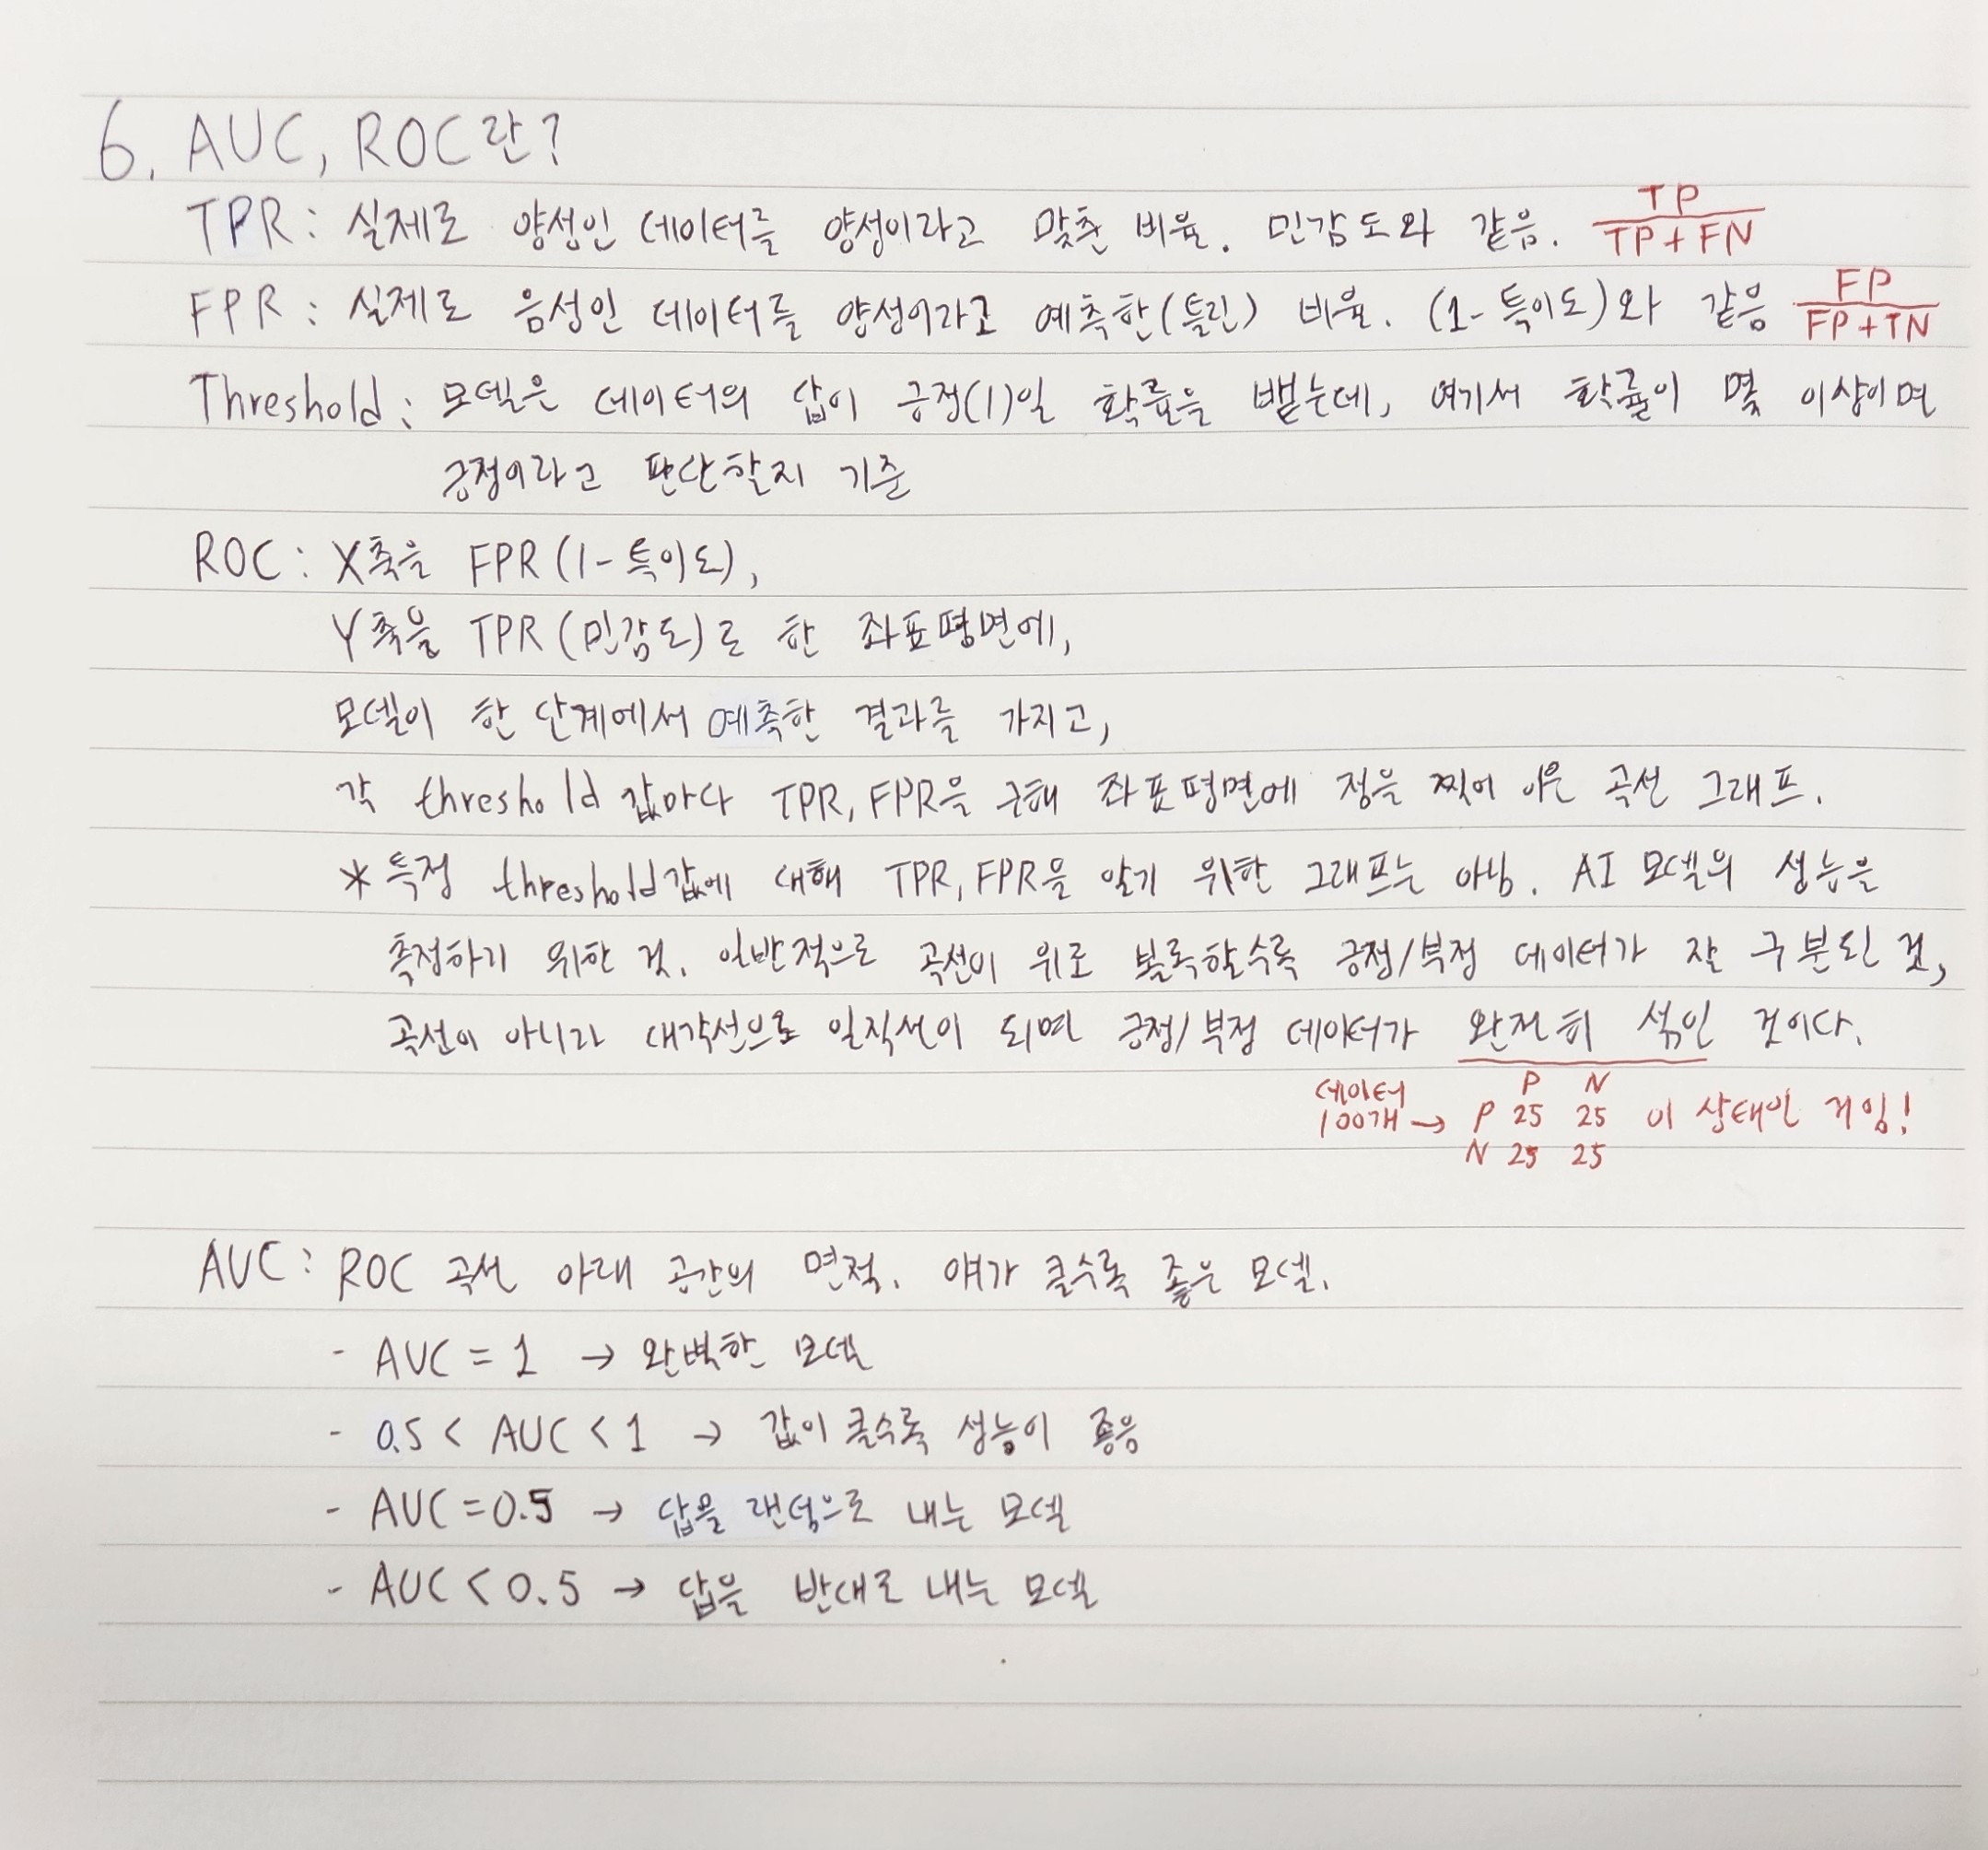 6. AUC, ROC란?
TPR : 실제로 양성인 데이터를 양성이라고 맞춘 비율. 민감도와 같음. TP / TP+FN
FPR : 실제로 음성인 데이터를 양성이라고 예측한(틀린) 비율. (1-특이도)와 같음 FP / FP+TN
Threshold : 모델은 데이터의 답이 긍정(1)일 확률을 뱉는데, 여기서 확률이 몇 이상이면
긍정이라고 판단할지 기준
ROC : X축을 FPR(1-특이도),
Y축을 TPR(민감도)로 한 좌표평면에,
모델이 한 단계에서 예측한 결과를 가지고,
각 threshold 값마다 TPR, FPR을 구해 좌표평면에 점을 찍어 이은 곡선 그래프.
* 특정 threshold값에 대해 TPR, FPR을 알기 위한 그래프는 아님. AI 모델의 성능을
측정하기 위한 것. 일반적으로 곡선이 위로 볼록할수록 긍정/부정 데이터가 잘 구분된 것,
곡선이 아니라 대각선으로 일직선이 되면 긍정/부정 데이터가 완전히 섞인 것이다.
P N
데이터 100개 → P 25 25 이 상태인 거임!
N 25 25
AUC : ROC 곡선 아래 공간의 면적. 얘가 클수록 좋은 모델.
- AUC = 1 → 완벽한 모델
- 0.5 < AUC < 1 → 값이 클수록 성능이 좋음
- AUC = 0.5 → 답을 랜덤으로 내는 모델
- AUC < 0.5 → 답을 반대로 내는 모델